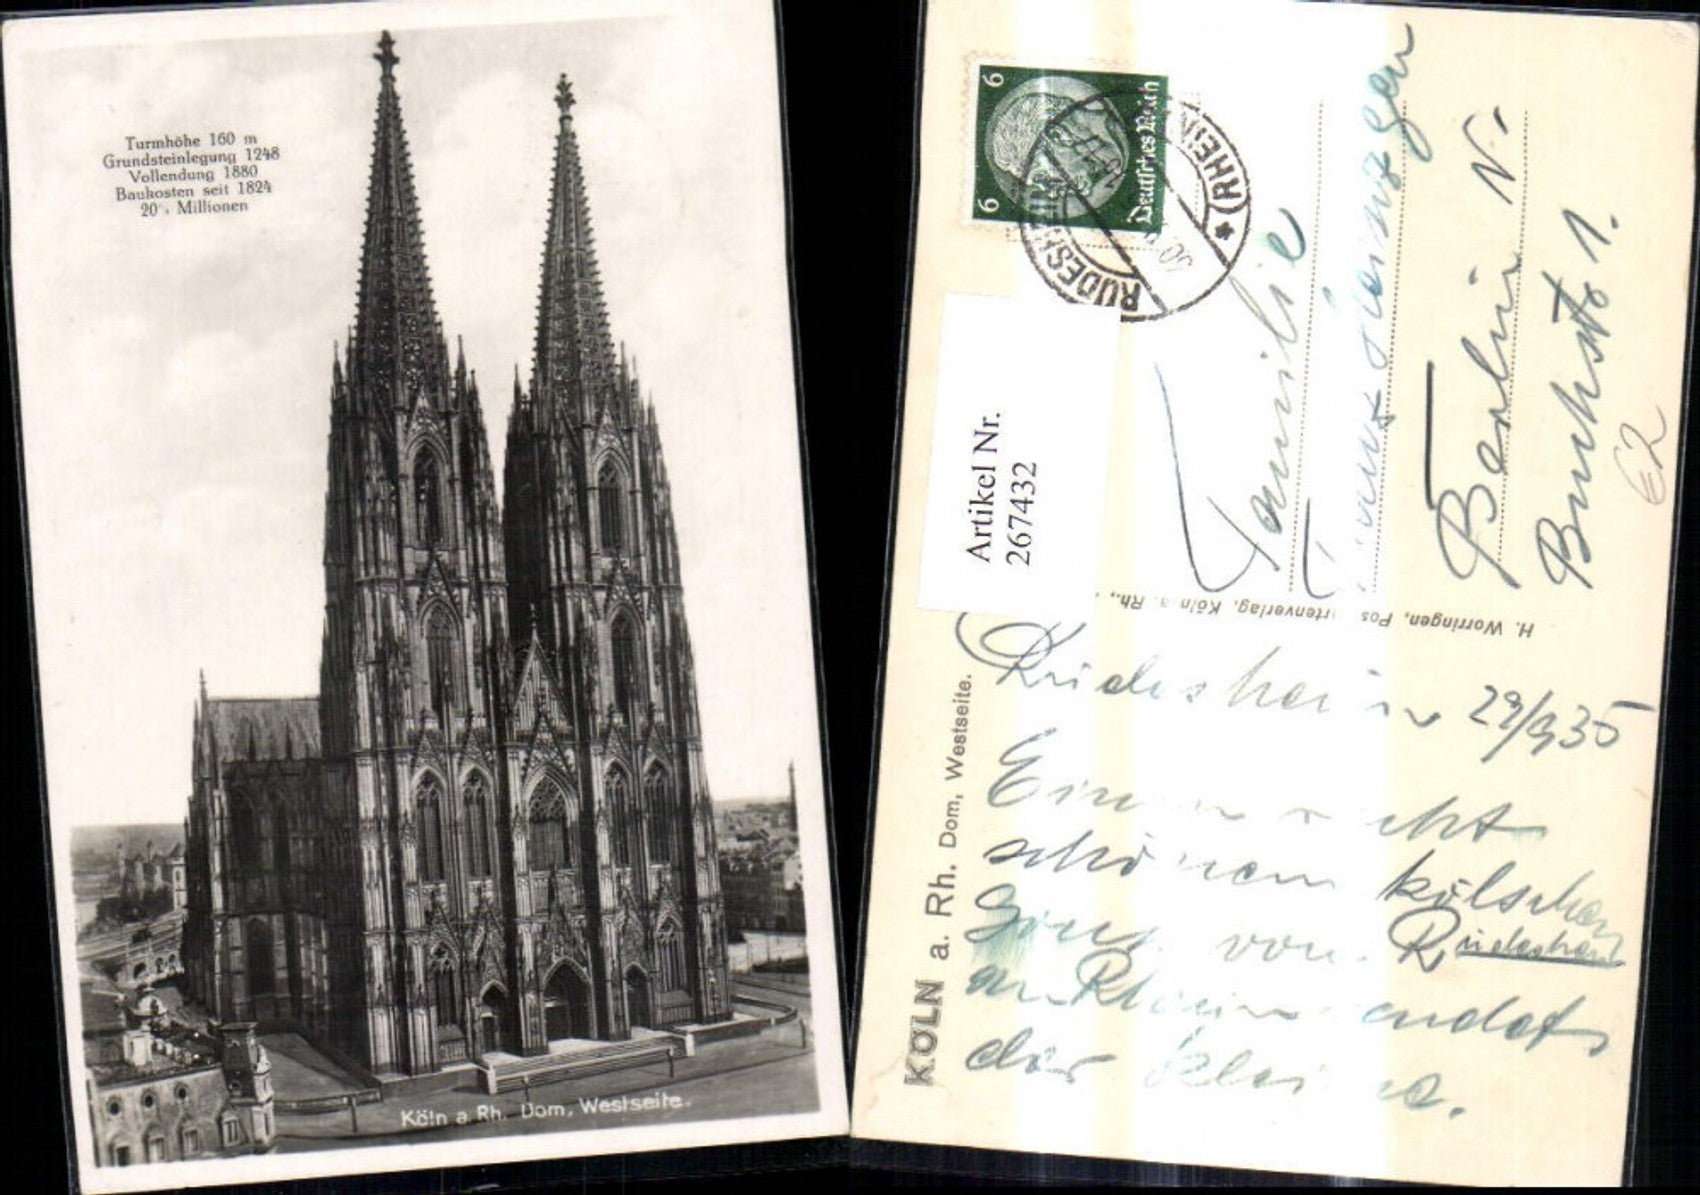 Turmhöhe 160 m
Grundsteinlegung 1248
Vollendung 1880
Baukosten seit 1824
20 Millionen
Köln a. Rh. Dom, Westseite.
6 6
Deutsches Reich
RÜDESHEIM
* (RHEIN
Artikel Nr.
267432
Familie
Berlin N.
Buchstr 1.
€2
H. Worringen, Pos rtenverlag, Köln a. Rh.,
KÖLN a. Rh. Dom, Westseite.
Rüdesheim 29/9 35
Einen recht
schönen kölschen
von Rüdesheim
am Rhein sendet
der Kleine.